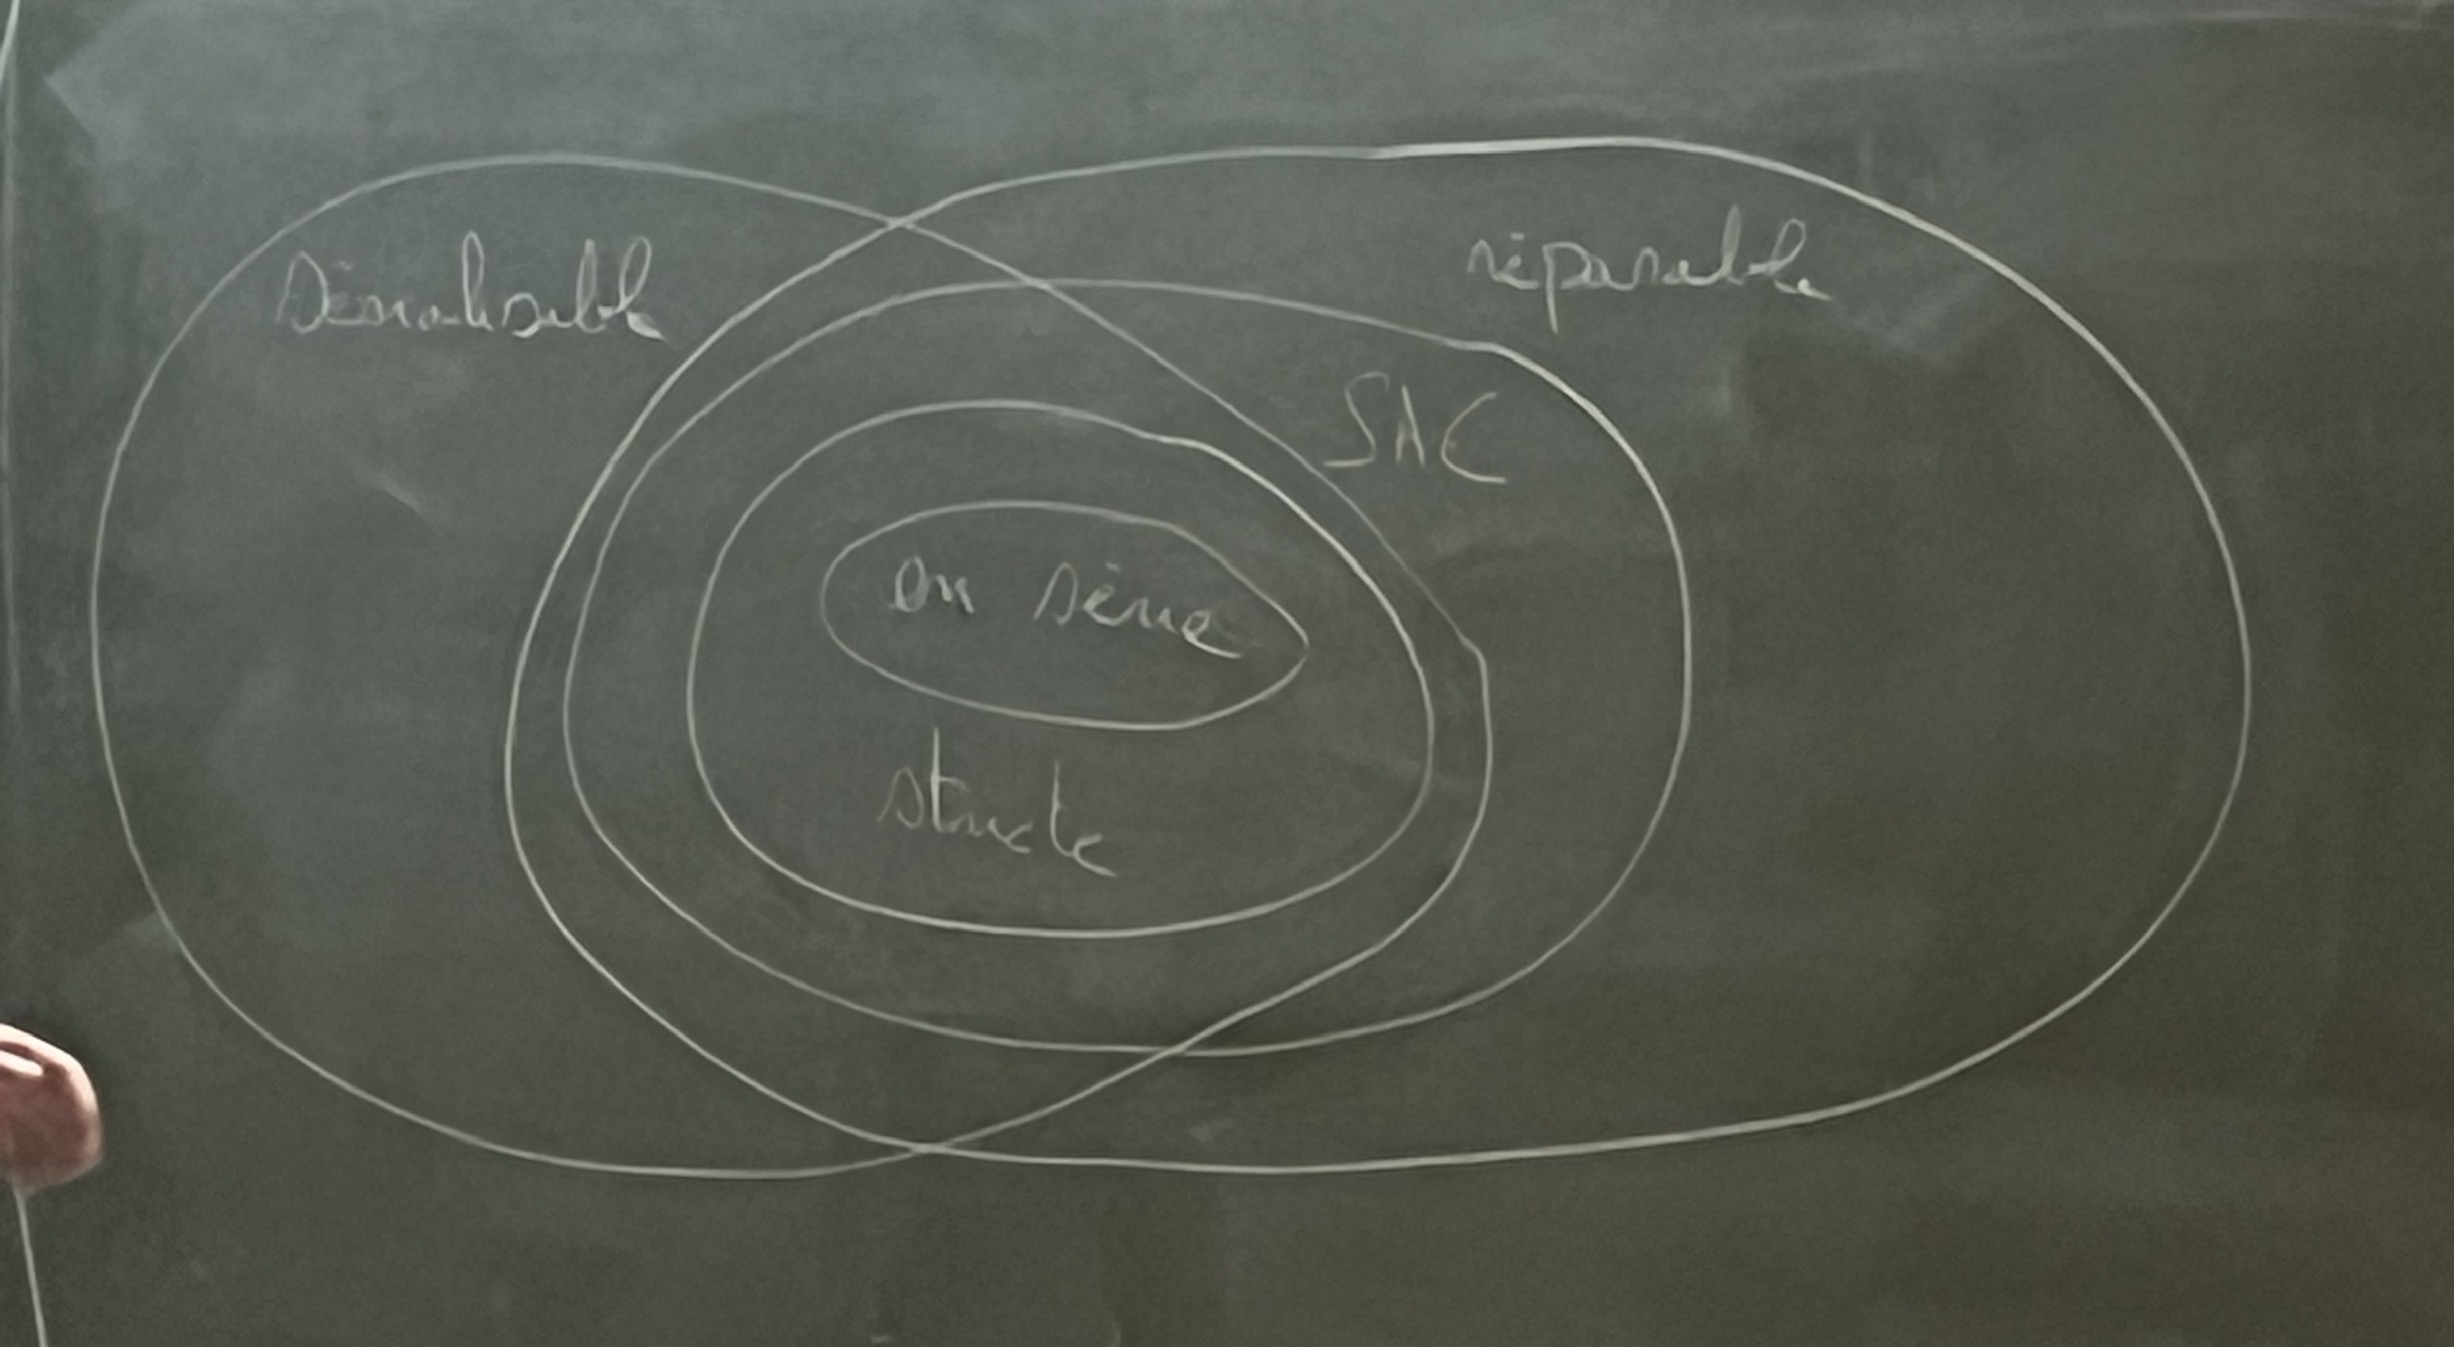 Sérialisable
réparable
SAC
en série
stricte